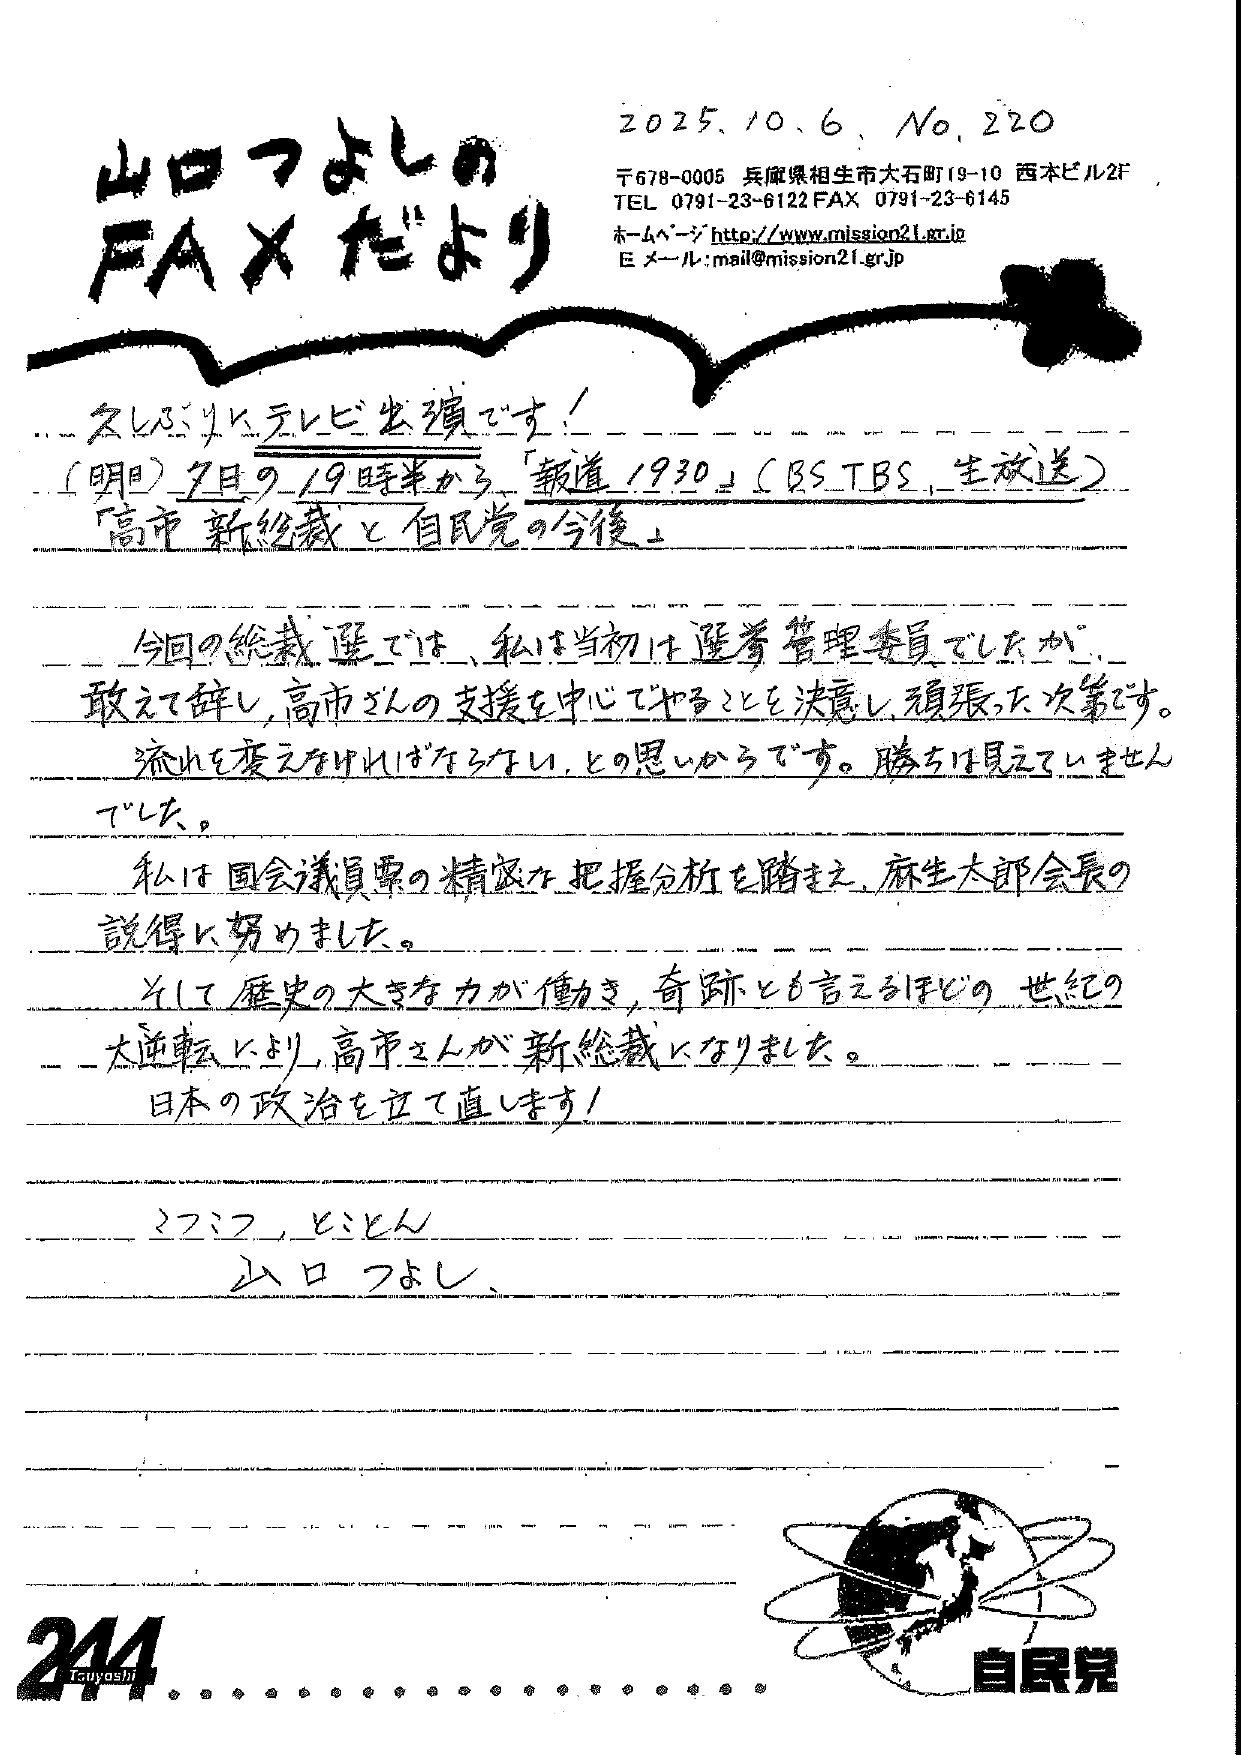 山口つよしの
FAXだより
2025.10.6. No.220
〒678-0005 兵庫県相生市大石町19-10 西本ビル2F
TEL 0791-23-6122 FAX 0791-23-6145
ホームページ http://www.mission21.gr.jp
E メール:mail@mission21.gr.jp
久しぶりにテレビ出演です！
(明日)7日の19時半から、「報道1930」(BS TBS、生放送)
「高市新総裁と自民党の今後」
今回の総裁選では、私は当初は選挙管理委員でしたが、
敢えて辞し、高市さんの支援を中心でやることを決意し、頑張った次第です。
流れを変えなければならない、との思いからです。勝ちは見えていません
でした。
私は国会議員票の精密な把握分析を踏まえ、麻生太郎会長の
説得に努めました。
そして歴史の大きな力が働き、奇跡とも言えるほどの世紀の
大逆転により、高市さんが新総裁になりました。
日本の政治を立て直します！
コツコツ、とことん
山口つよし、
244
Tsuyoshi
自民党